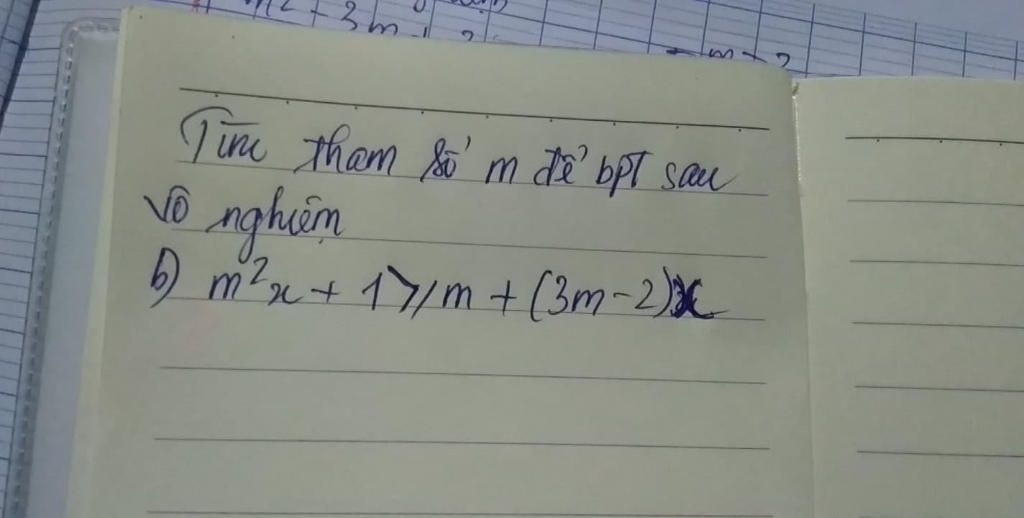 m² + 3m + 2
m + 2
Tìm tham số m để bpt sau
vô nghiệm
b) m²x + 1 ≥ m + (3m - 2)x